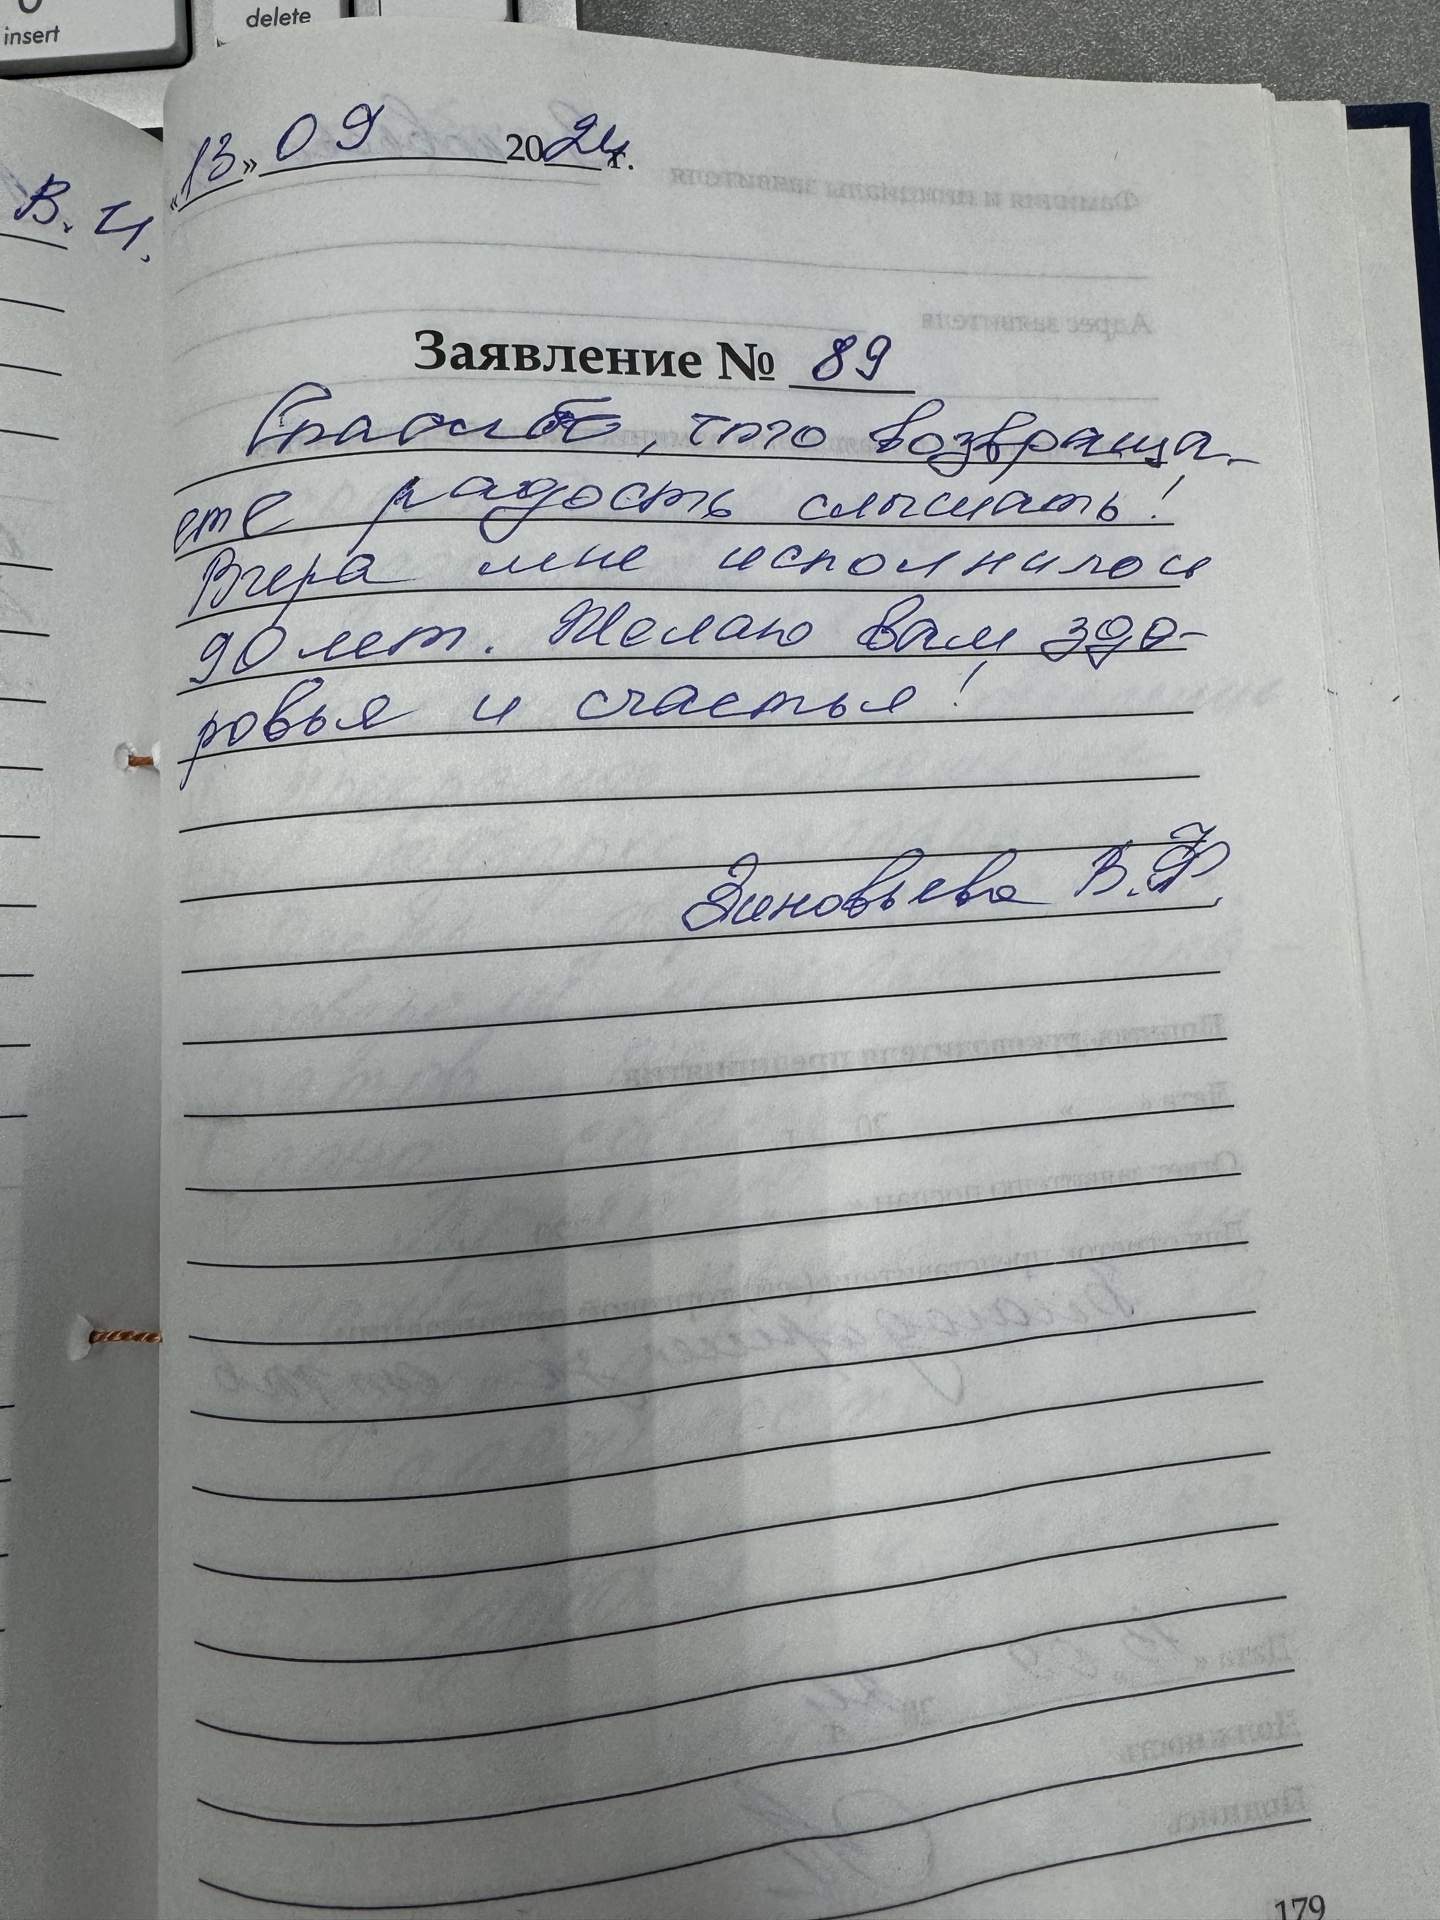 insert
delete
В. И.
«13» 09 2024г.
Заявление № 89
Спасибо, что возвраща-
ете радость слышать!
Вчера мне исполнилось
90 лет. Желаю вам здо-
ровья и счастья!
Зиновьева В.Ф.
179